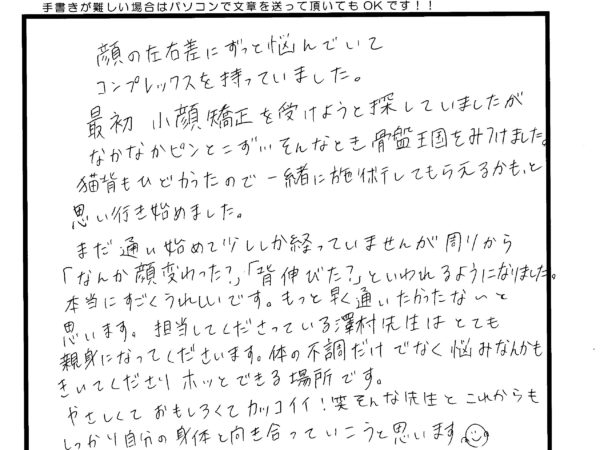 手書きが難しい場合はパソコンで文章を送って頂いてもOKです！！
顔の左右差にずっと悩んでいて
コンプレックスを持っていました。
最初 小顔矯正を受けようと探していましたが
なかなかピンとこずいそんなとき骨盤王国をみつけました。
猫背もひどかったので一緒に施術してもらえるかも、と
思い行き始めました。
まだ通い始めて少ししか経っていませんが周りから
「なんか顔変わった？」「背伸びた？」といわれるようになりました。
本当にすごくうれしいです。もっと早く通いたかったないと
思います。担当してくださっている澤村先生はとても
親身になってくださいます。体の不調だけでなく悩みなんかも
きいてくださりホッとできる場所です。
やさしくておもしろくてカッコイイ！笑そんな先生とこれからも
しっかり自分の身体と向き合っていこうと思います